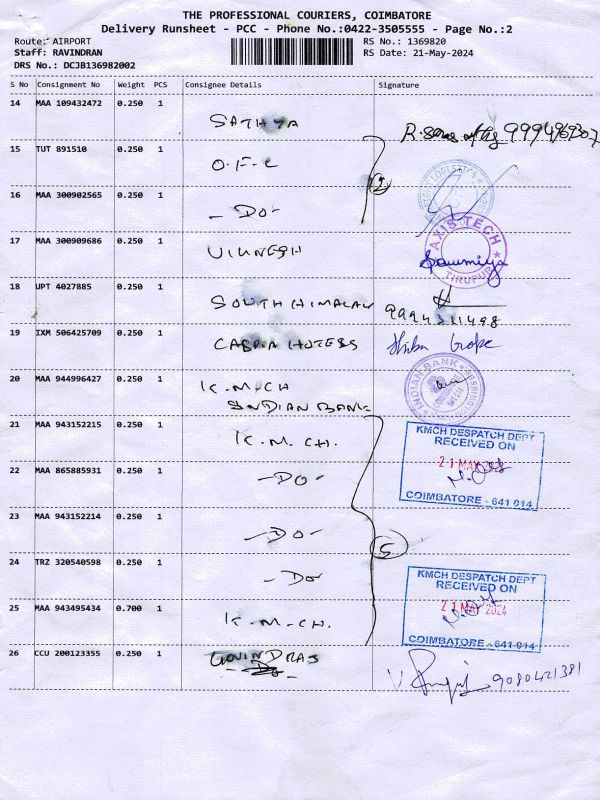 THE PROFESSIONAL COURIERS, COIMBATORE
Delivery Runsheet - PCC - Phone No.:0422-3505555 - Page No.:2
Route: AIRPORT RS No.: 1369820
Staff: RAVINDRAN RS Date: 21-May-2024
DRS No.: DCJB136982002
S No Consignment No Weight PCS Consignee Details Signature
14 MAA 109432472 0.250 1 SATHYA
15 TUT 891510 0.250 1 O.F.C
16 MAA 300902565 0.250 1 - DO -
17 MAA 300909686 0.250 1 AXIS TECH TIRUPUR Sowmiya
18 UPT 4027885 0.250 1 SOUTH HIMALAY
19 IXM 506425709 0.250 1 HOTELS
20 MAA 944996427 0.250 1 K.M.CH INDIAN BANK INDIAN BANK
21 MAA 943152215 0.250 1 K.M.CH.
KMCH DESPATCH DEPT
RECEIVED ON
21 MAY
COIMBATORE - 641 014
22 MAA 865885931 0.250 1 - DO -
23 MAA 943152214 0.250 1 - DO -
5
24 TRZ 320540598 0.250 1 - DO -
KMCH DESPATCH DEPT
RECEIVED ON
21 MAY 2024
COIMBATORE - 641 014
25 MAA 943495434 0.700 1 K.M.CH.
26 CCU 200123355 0.250 1 GOVINDRAJ 9080421381